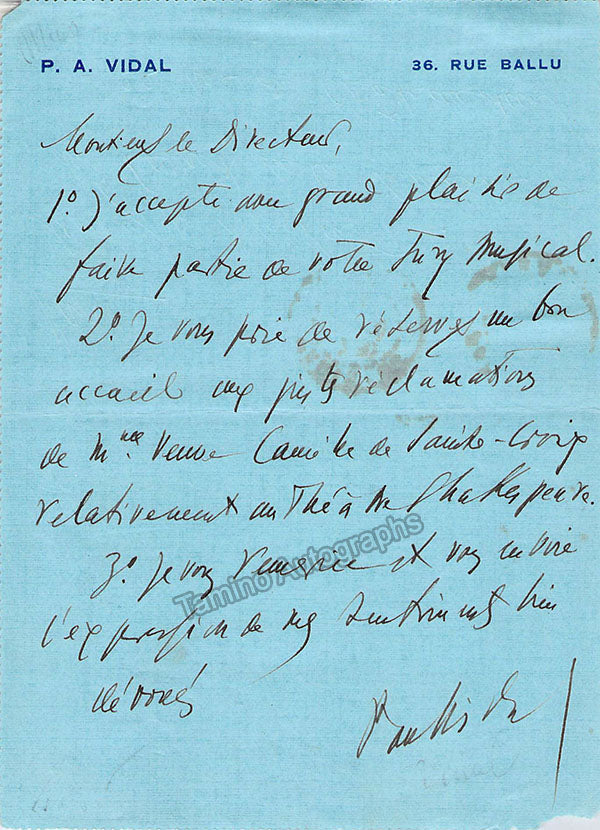 P. A. VIDAL
36. RUE BALLU
Monsieur le Directeur,
1º. J'accepte avec grand plaisir de
faire partie de votre Jury Musical.
2º. Je vous prie de réserver un bon
accueil aux justes réclamations
de Mme. Veuve Camille de Sainte-Croix
relativement au Théâtre Shakespeare.
3º. Je vous remercie et vous envoie
l'expression de mes sentiments bien
dévoués
Paul Vidal
Tamino Autographs